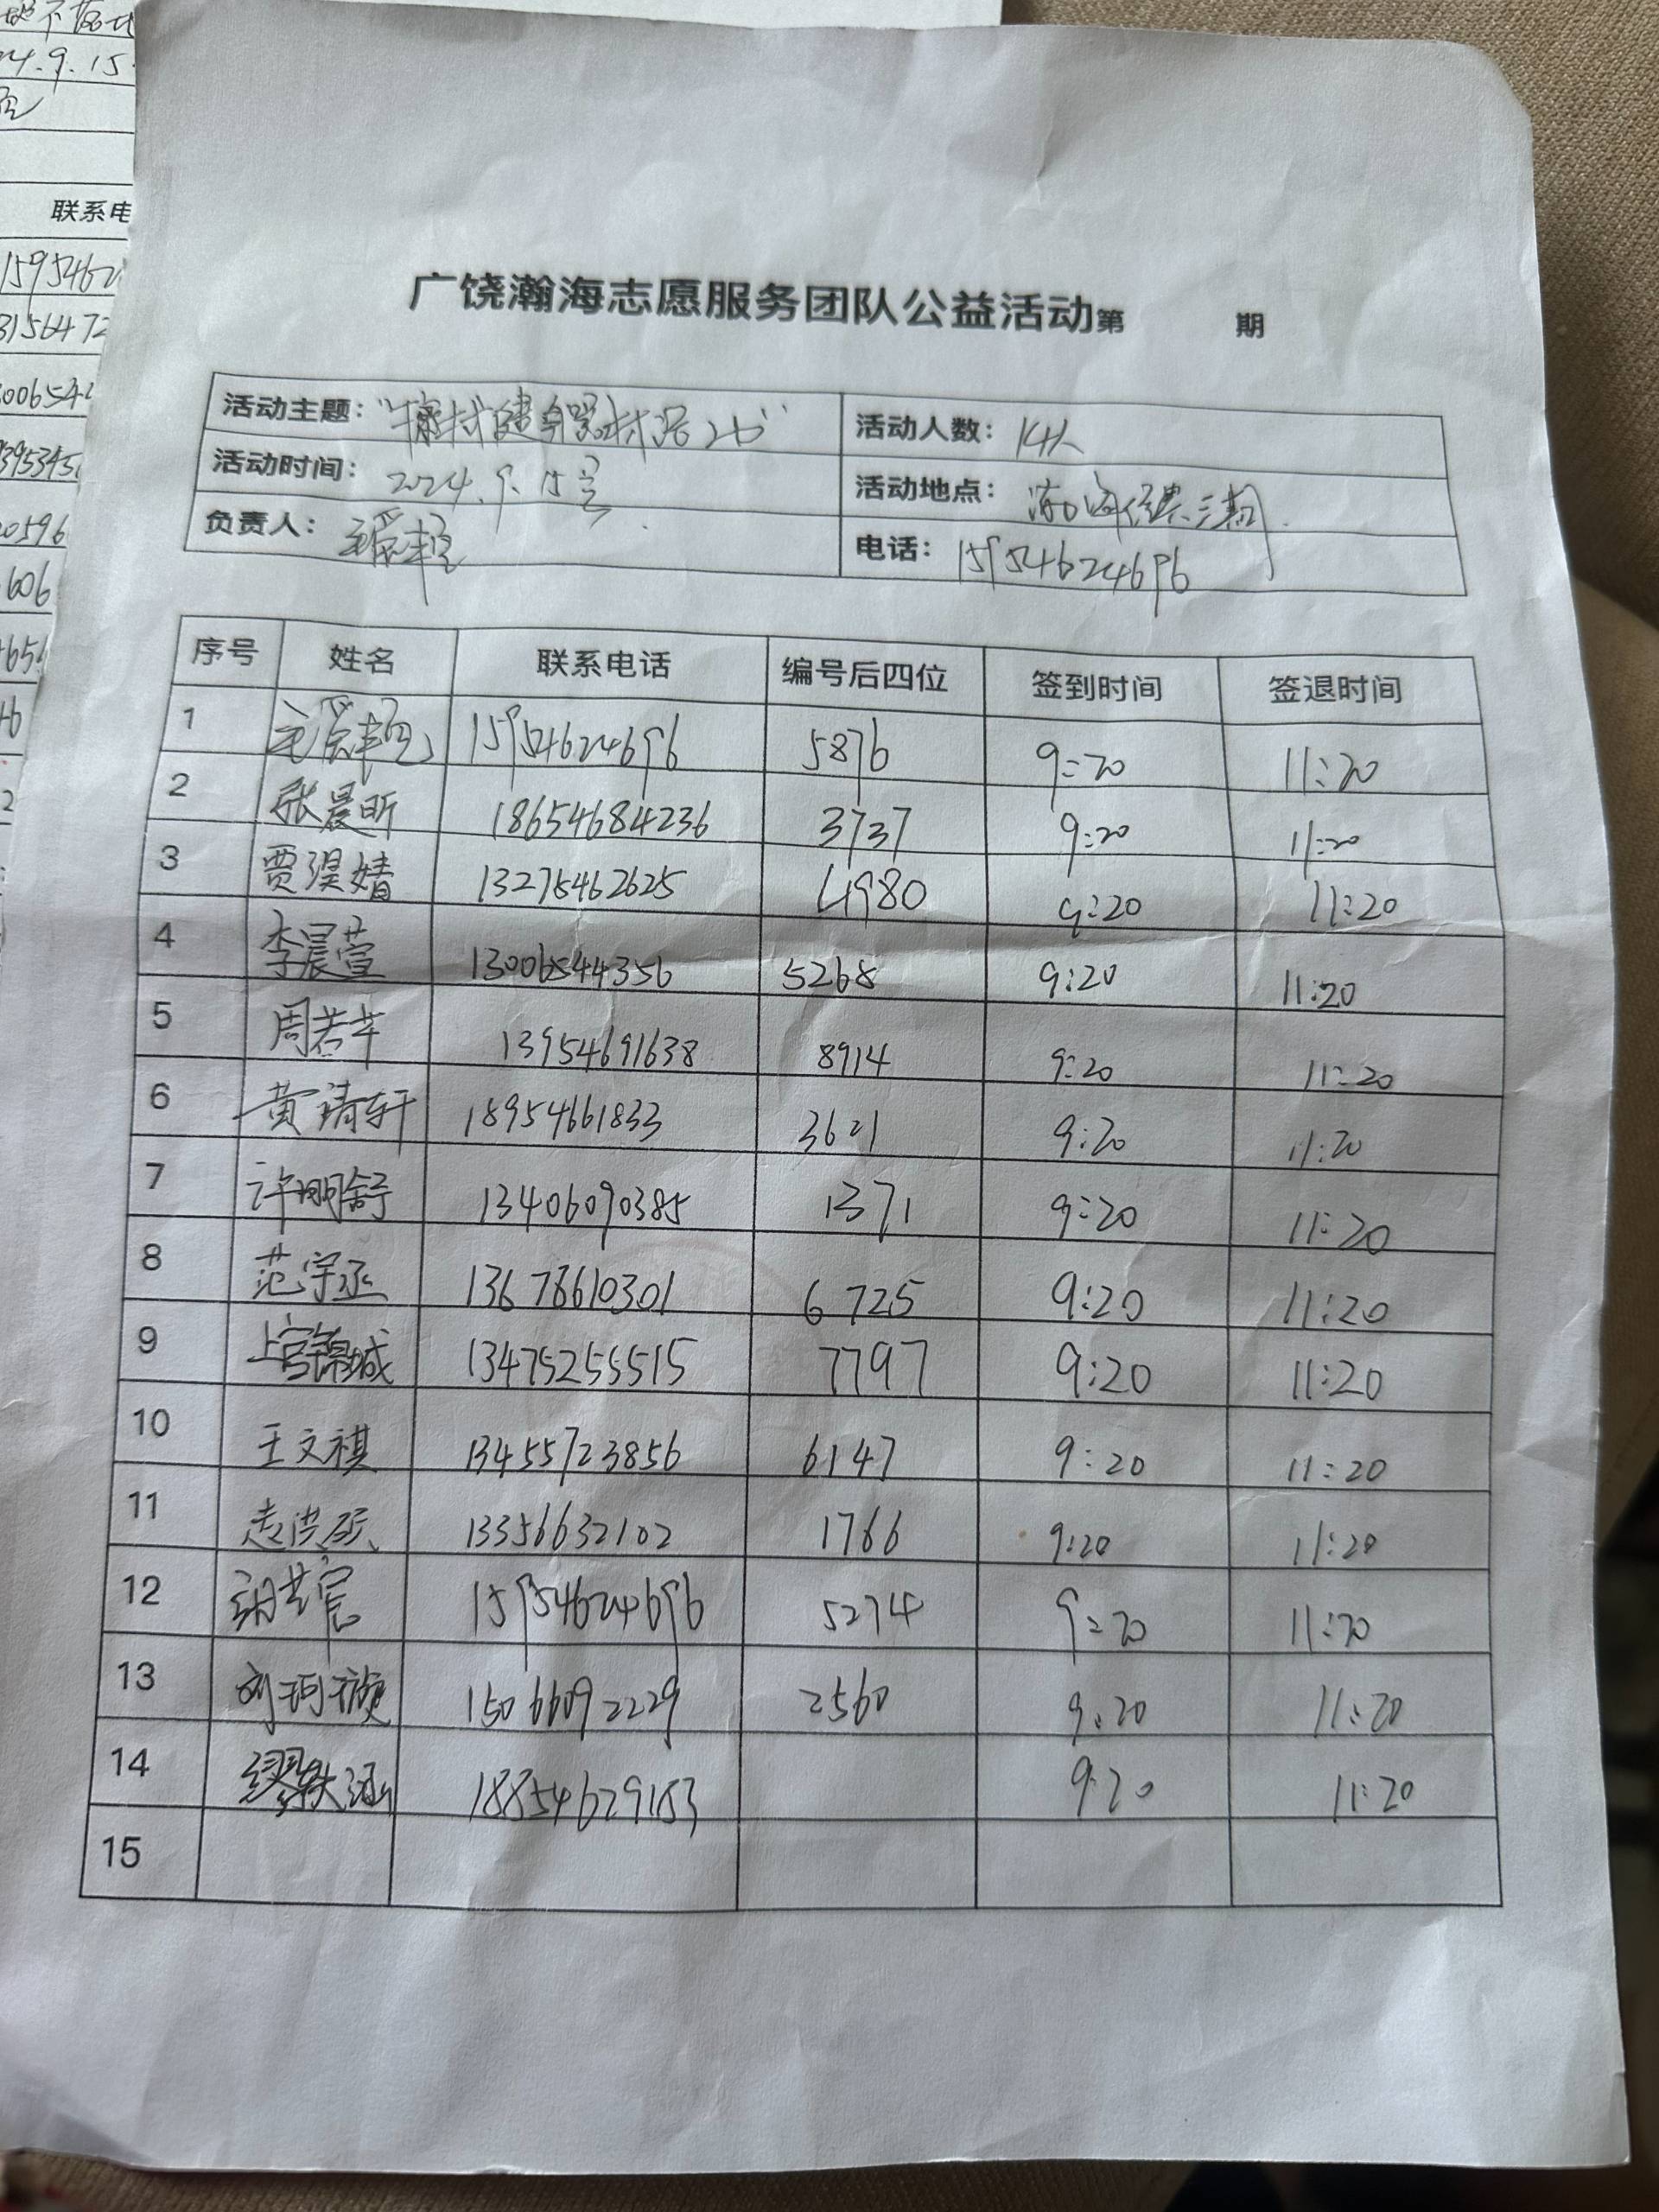 24.9.15
联系电
1595462
3156472
006544
3953451
20596
606
广饶瀚海志愿服务团队公益活动第 期
活动主题：“擦拭健身器材活动” 活动人数：14人
活动时间：2024.9.15号 活动地点：三期
负责人： 电话：15954624696
序号 姓名 联系电话 编号后四位 签到时间 签退时间
1 15954624696 5876 9:20 11:20
2 张晨昕 18654684236 3737 9:20 11:20
3 贾淏婧 13275462625 4980 9:20 11:20
4 李晨萱 13006544356 5268 9:20 11:20
5 周若芊 13954691638 8914 9:20 11:20
6 黄靖轩 18954661833 3621 9:20 11:20
7 许明舒 13406090385 1371 9:20 11:20
8 范宇丞 13678610301 6725 9:20 11:20
9 上官锦城 13475255515 7797 9:20 11:20
10 王文祺 13455723856 6147 9:20 11:20
11 13356632102 1766 9:20 11:20
12 15954624696 5274 9:20 11:20
13 刘珂旋 15066092229 2560 9:20 11:20
14 缪轶涵 18854629153 9:20 11:20
15